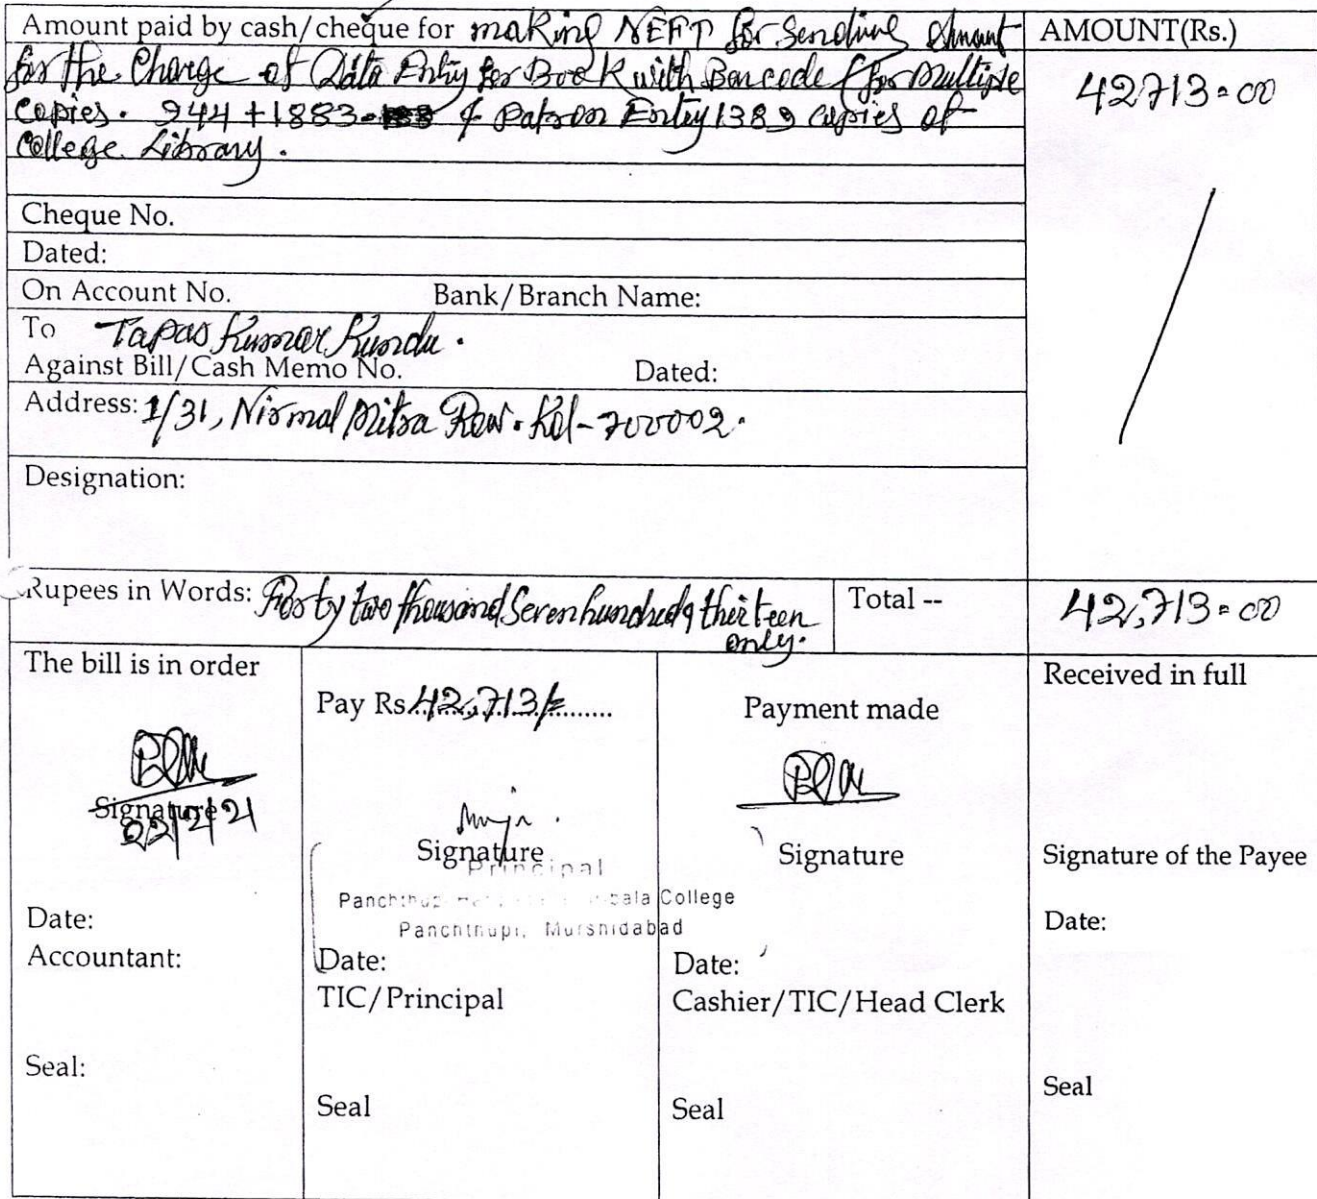 Amount paid by cash/cheque for making NEFT for sending Amount AMOUNT(Rs.)
for the Charge of Data Entry for Book with Barcode (for Multiple 42713=00
Copies. 944+1883 & Patron Entry 1389 copies of
College Library.
Cheque No.
Dated:
On Account No. Bank/Branch Name:
To Tapas Kumar Kundu.
Against Bill/Cash Memo No. Dated:
Address: 1/31, Nirmal Mitra Row. Kol-700002.
Designation:
Rupees in Words: Forty two thousand Seven hundred & thirteen only. Total -- 42,713=00
The bill is in order
Signature
22/2/21
Date:
Accountant:
Seal:
Pay Rs. 42,713/=
Signature
Principal
College
Panchthupi, Murshidabad
Date:
TIC/Principal
Seal
Payment made
Signature
Date:
Cashier/TIC/Head Clerk
Seal
Received in full
Signature of the Payee
Date:
Seal